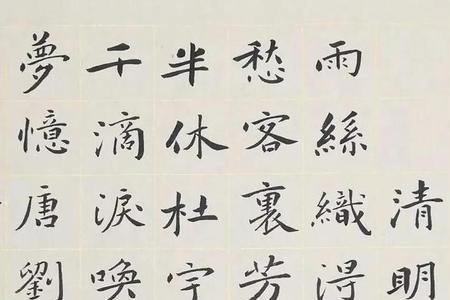 清明
雨絲織淂
愁客裏芳
半休杜宇
千滴淚喚
夢憶唐劉